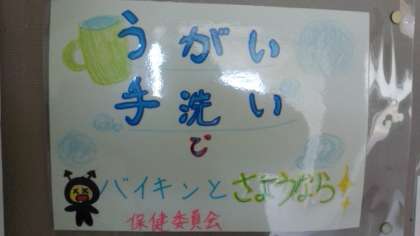 うがい
手洗い
で
バイキンとさようなら
保健委員会